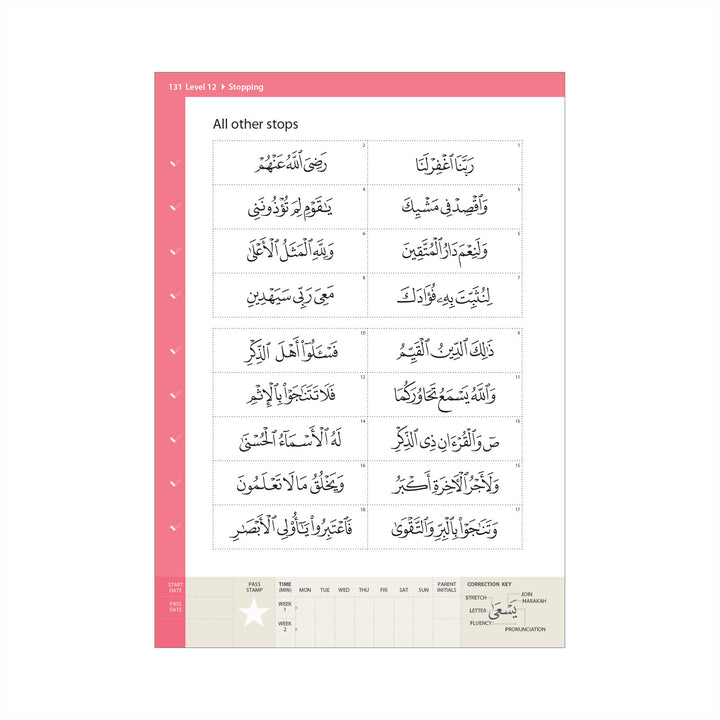 131 Level 12 ▸ Stopping
All other stops
1 رَبَّنَا ٱغْفِرْ لَنَا
2 رَضِىَ ٱللَّهُ عَنْهُمْ
3 وَٱقْصِدْ فِى مَشْيِكَ
4 يَـٰقَوْمِ لِمَ تُؤْذُونَنِى
5 وَلَنِعْمَ دَارُ ٱلْمُتَّقِينَ
6 وَلِلَّهِ ٱلْمَثَلُ ٱلْأَعْلَىٰ
7 لِنُثَبِّتَ بِهِۦ فُؤَادَكَ
8 مَعِىَ رَبِّى سَيَهْدِينِ
9 ذَٰلِكَ ٱلدِّينُ ٱلْقَيِّمُ
10 فَسْـَٔلُوٓا۟ أَهْلَ ٱلذِّكْرِ
11 وَٱللَّهُ يَسْمَعُ تَحَاوُرَكُمَا
12 فَلَا تَتَنَـٰجَوْا۟ بِٱلْإِثْمِ
13 صٓ وَٱلْقُرْءَانِ ذِى ٱلذِّكْرِ
14 لَهُ ٱلْأَسْمَآءُ ٱلْحُسْنَىٰ
15 وَلَأَجْرُ ٱلْـَٔاخِرَةِ أَكْبَرُ
16 وَيَخْلُقُ مَا لَا تَعْلَمُونَ
17 وَتَنَـٰجَوْا۟ بِٱلْبِرِّ وَٱلتَّقْوَىٰ
18 فَٱعْتَبِرُوا۟ يَـٰٓأُو۟لِى ٱلْأَبْصَـٰرِ
START DATE
PASS DATE
PASS STAMP
TIME (MIN) MON TUE WED THU FRI SAT SUN PARENT INITIALS
WEEK 1
WEEK 2
CORRECTION KEY
STRETCH
JOIN
HARAKAH
LETTER
يَسْعَىٰ
FLUENCY
PRONUNCIATION